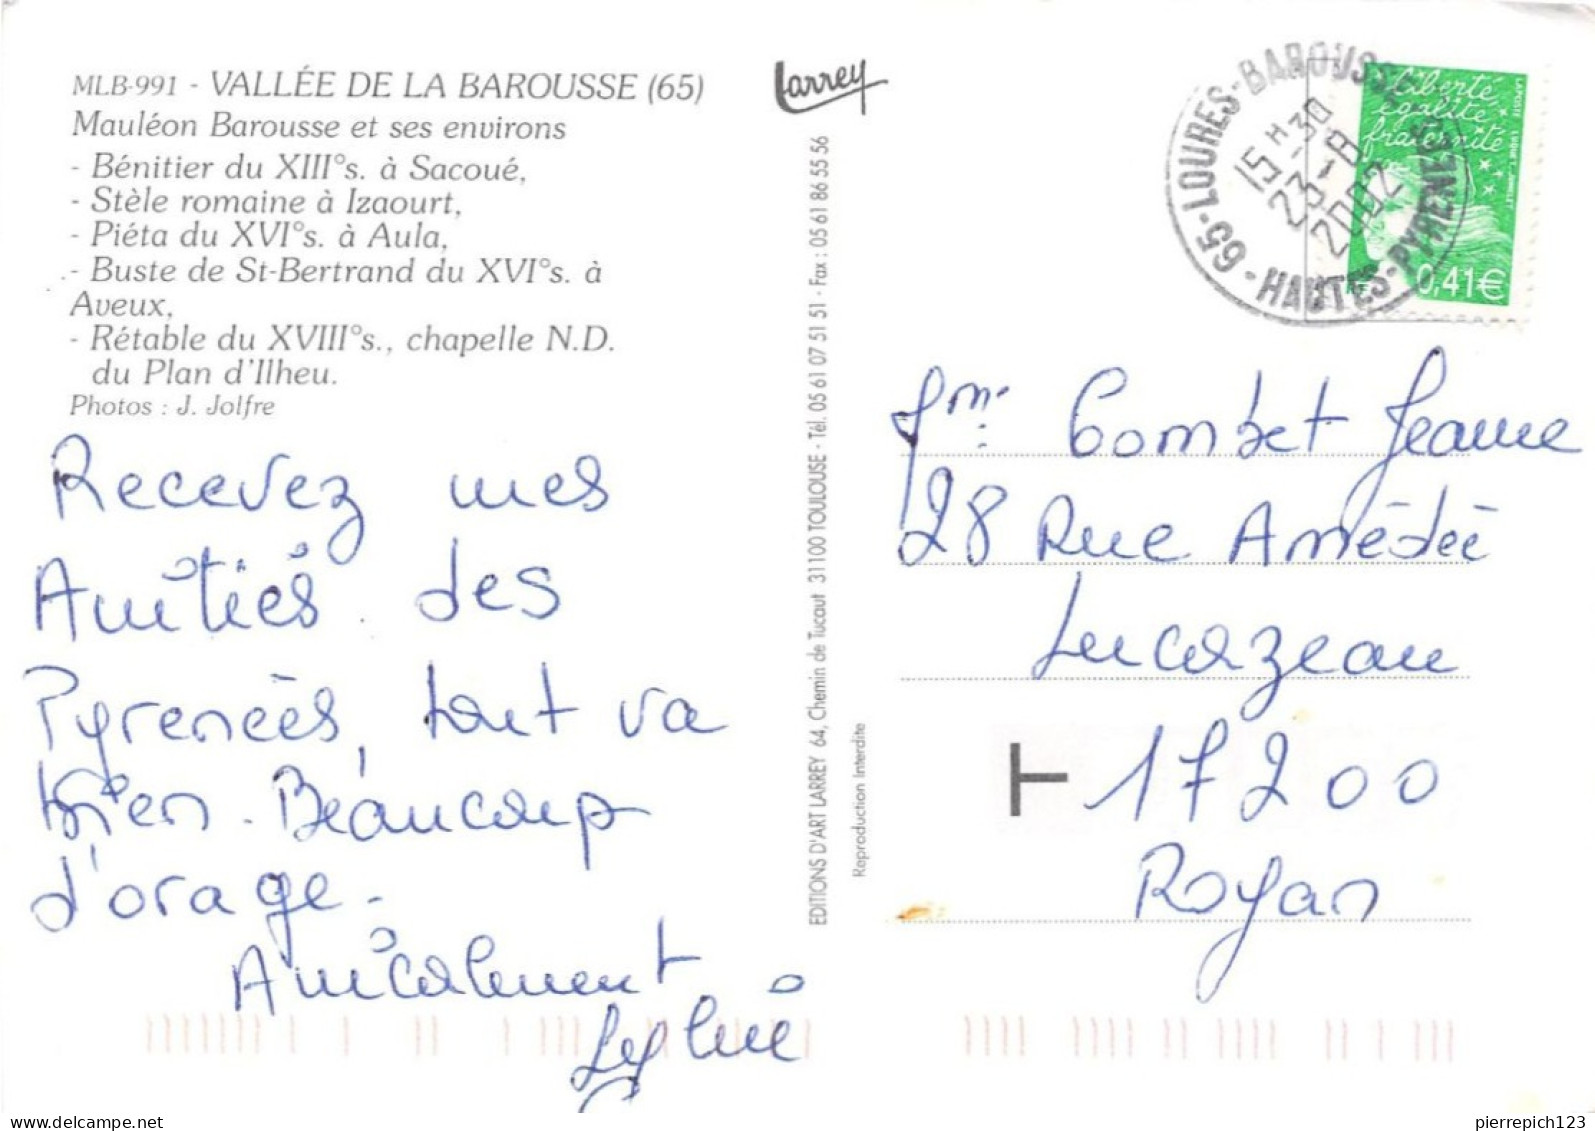 MLB-991 - VALLÉE DE LA BAROUSSE (65)
Mauléon Barousse et ses environs
- Bénitier du XIII°s. à Sacoué,
- Stèle romaine à Izaourt,
- Piéta du XVI°s. à Aula,
- Buste de St-Bertrand du XVI°s. à
Aveux,
- Rétable du XVIII°s., chapelle N.D.
du Plan d'Ilheu.
Photos : J. Jolfre
Recevez mes
Amitiés des
Pyrenées, tout va
bien. Beaucoup
d'orage.
Amicalement
Sylvie
Larrey
EDITIONS D'ART LARREY 64, Chemin de Tucaut 31100 TOULOUSE - Tél. 05 61 07 51 51 - Fax : 05 61 86 55 56
Reproduction Interdite
65 - LOURES-BAROUSSE
15 H 30
23 - 8
2002
- HAUTES-PYRENEES
Liberté
égalité
fraternité
LAPOSTE
0,41€
Combet Jeanne
28 Rue Amédée
Lucazeau
T 17200
Royan
pierrepich123